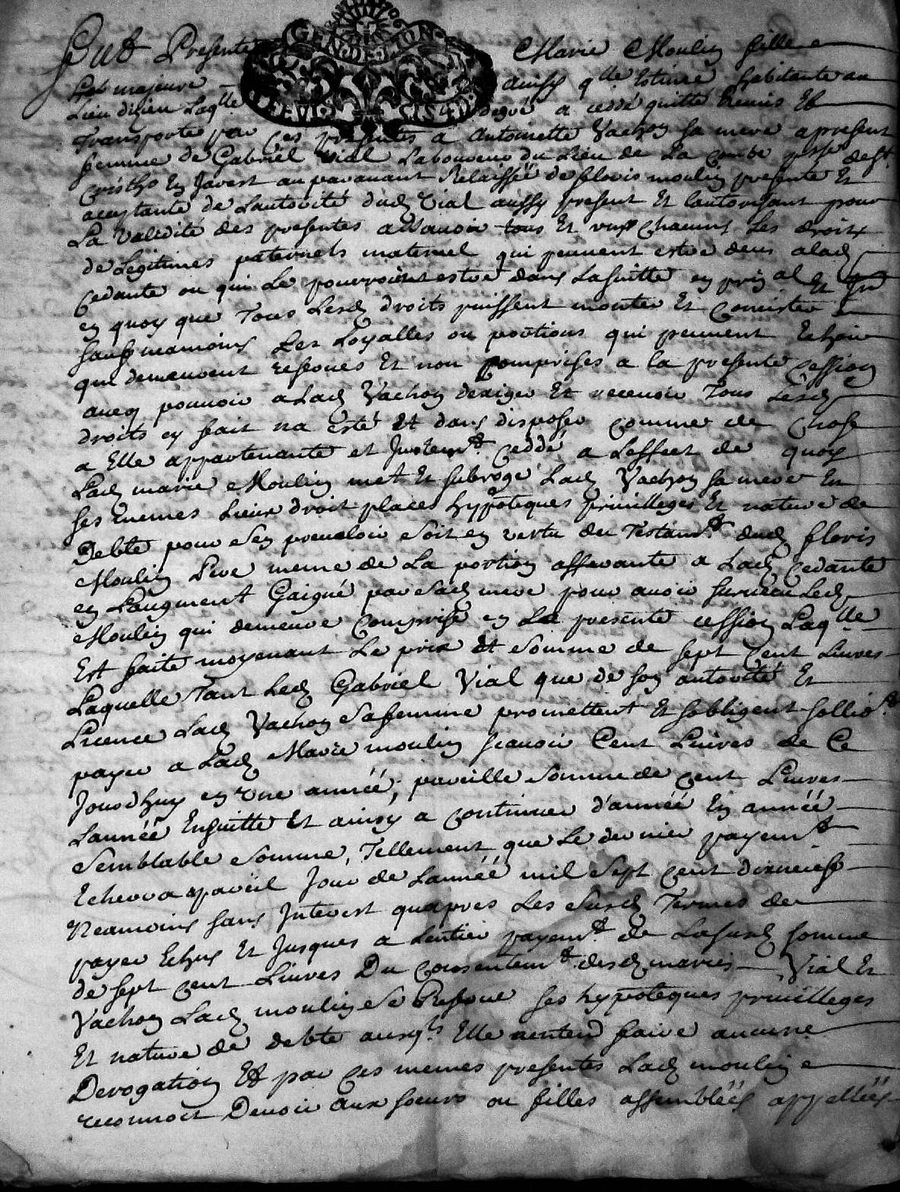 Fut Presente Marie Moulin fille
majeure ainsy qlle estime habitante au
Lieu dizieu Laqlle de gré a cedé quitte Remis Et
Transporté par ces presentes a Antoinette Vachon sa mere apresent
femme de Gabriel Vial Laboureur du Lieu de La Combe
Cristho En Javest auparavant Relaissée de floris moulin presente Et
aceptante de Lautorité dud Vial aussy present Et Lautorisant pour
La validité des presentes assavoir tous Et uns chacuns Les droits
de Legitimes paternels maternel qui peuvent estre deus alad
Cedante ou qui Le pourroient estre dans Lasuitte en prinal Et
en quoy que Tous Lesd droits puissent monter Et Consister
sauf neamoins Les Loyalles ou portions qui peuvent Echeoir
qui demeurent reservés Et non Comprises a la presente Cession
aueq pouvoir alad Vachon dexiger Et recevoir Tous Lesd
droits en fait na esté Et dans disposer comme de chose
a Elle appartenante et Justemt ceddé a Leffect de quoy
Lad marie Moulin met Et subroge Lad Vachon sa mere En
ses memes Lieux droit places hypoteques privilleges Et nature de
Debte pour sen prevaloir soit en vertu du Testamt dud floris
Moulin pere meme de La portion afferante a Lad Cedante
en Laugment Gaigné par sad mere pour avoir survecu Led
Moulin qui demeure Comprise en La presente cession Laqlle
Est faite moyenant Le prix Et somme de sept Cent Livres
Laquelle Tant Led Gabriel Vial que de son autorité Et
Licence Lad Vachon sa femme promettent Et sobligent sollidt
payer a Lad Marie moulin scavoir Cent Livres de Ce
Jourdhuy en une année, pareille somme de cent Livres
Lannée Ensuitte Et ainsy a continuer d'année En année
semblable somme, Tellement que Le dernier payemt
Echerra apareil Jour de Lannée mil sept cent dixneuf
Neamoins sans Interest quapres Les susd Termes de
payer Echus Et Jusques a Lentier payemt de Lasusd somme
de sept cent Livres Du consentemt desd mariés Vial Et
Vachon Lad moulin se Reserve ses hypoteques privilleges
Et nature de debte ausqls Elle nentend faire aucune
Derogation Et par ces memes presentes Lad moulin
reconnoit Devoir aux soeurs ou filles assemblées appellées